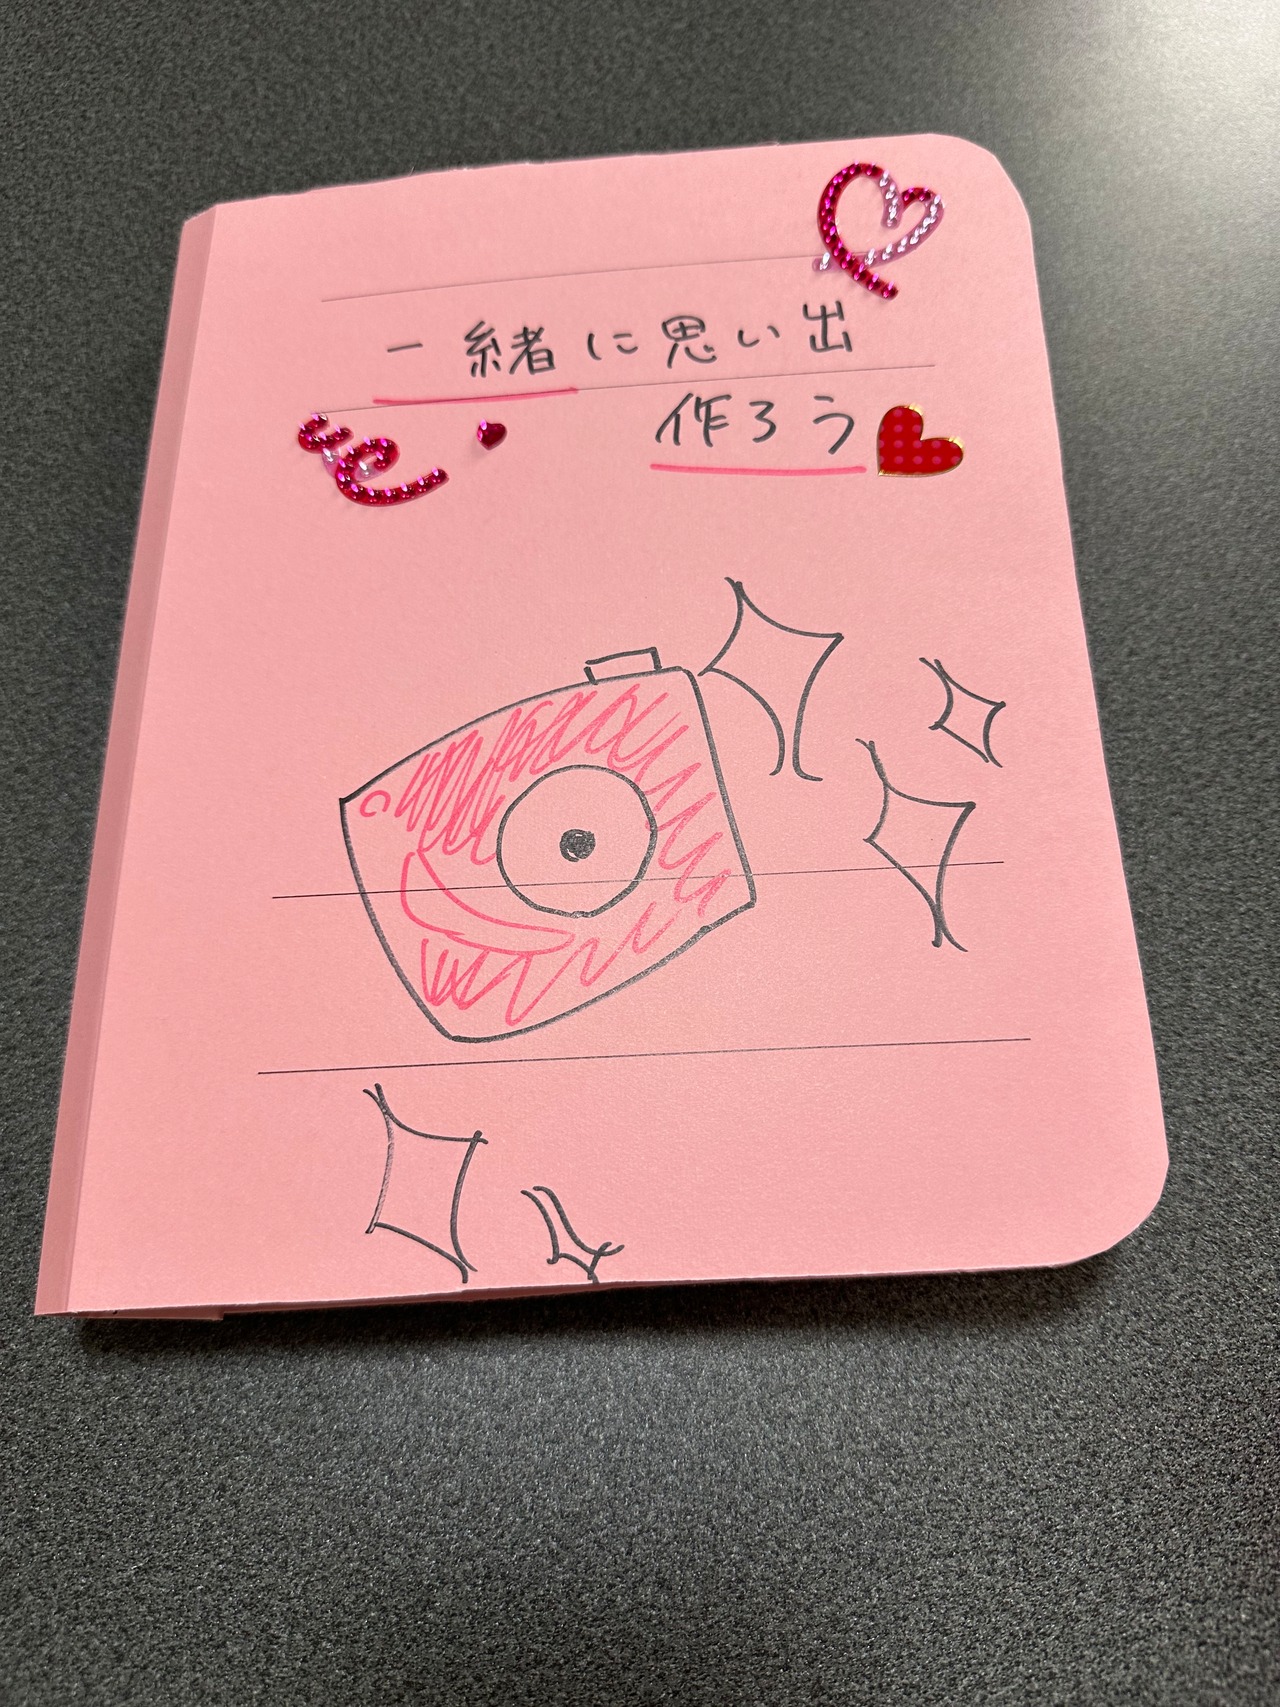 一緒に思い出
作ろう